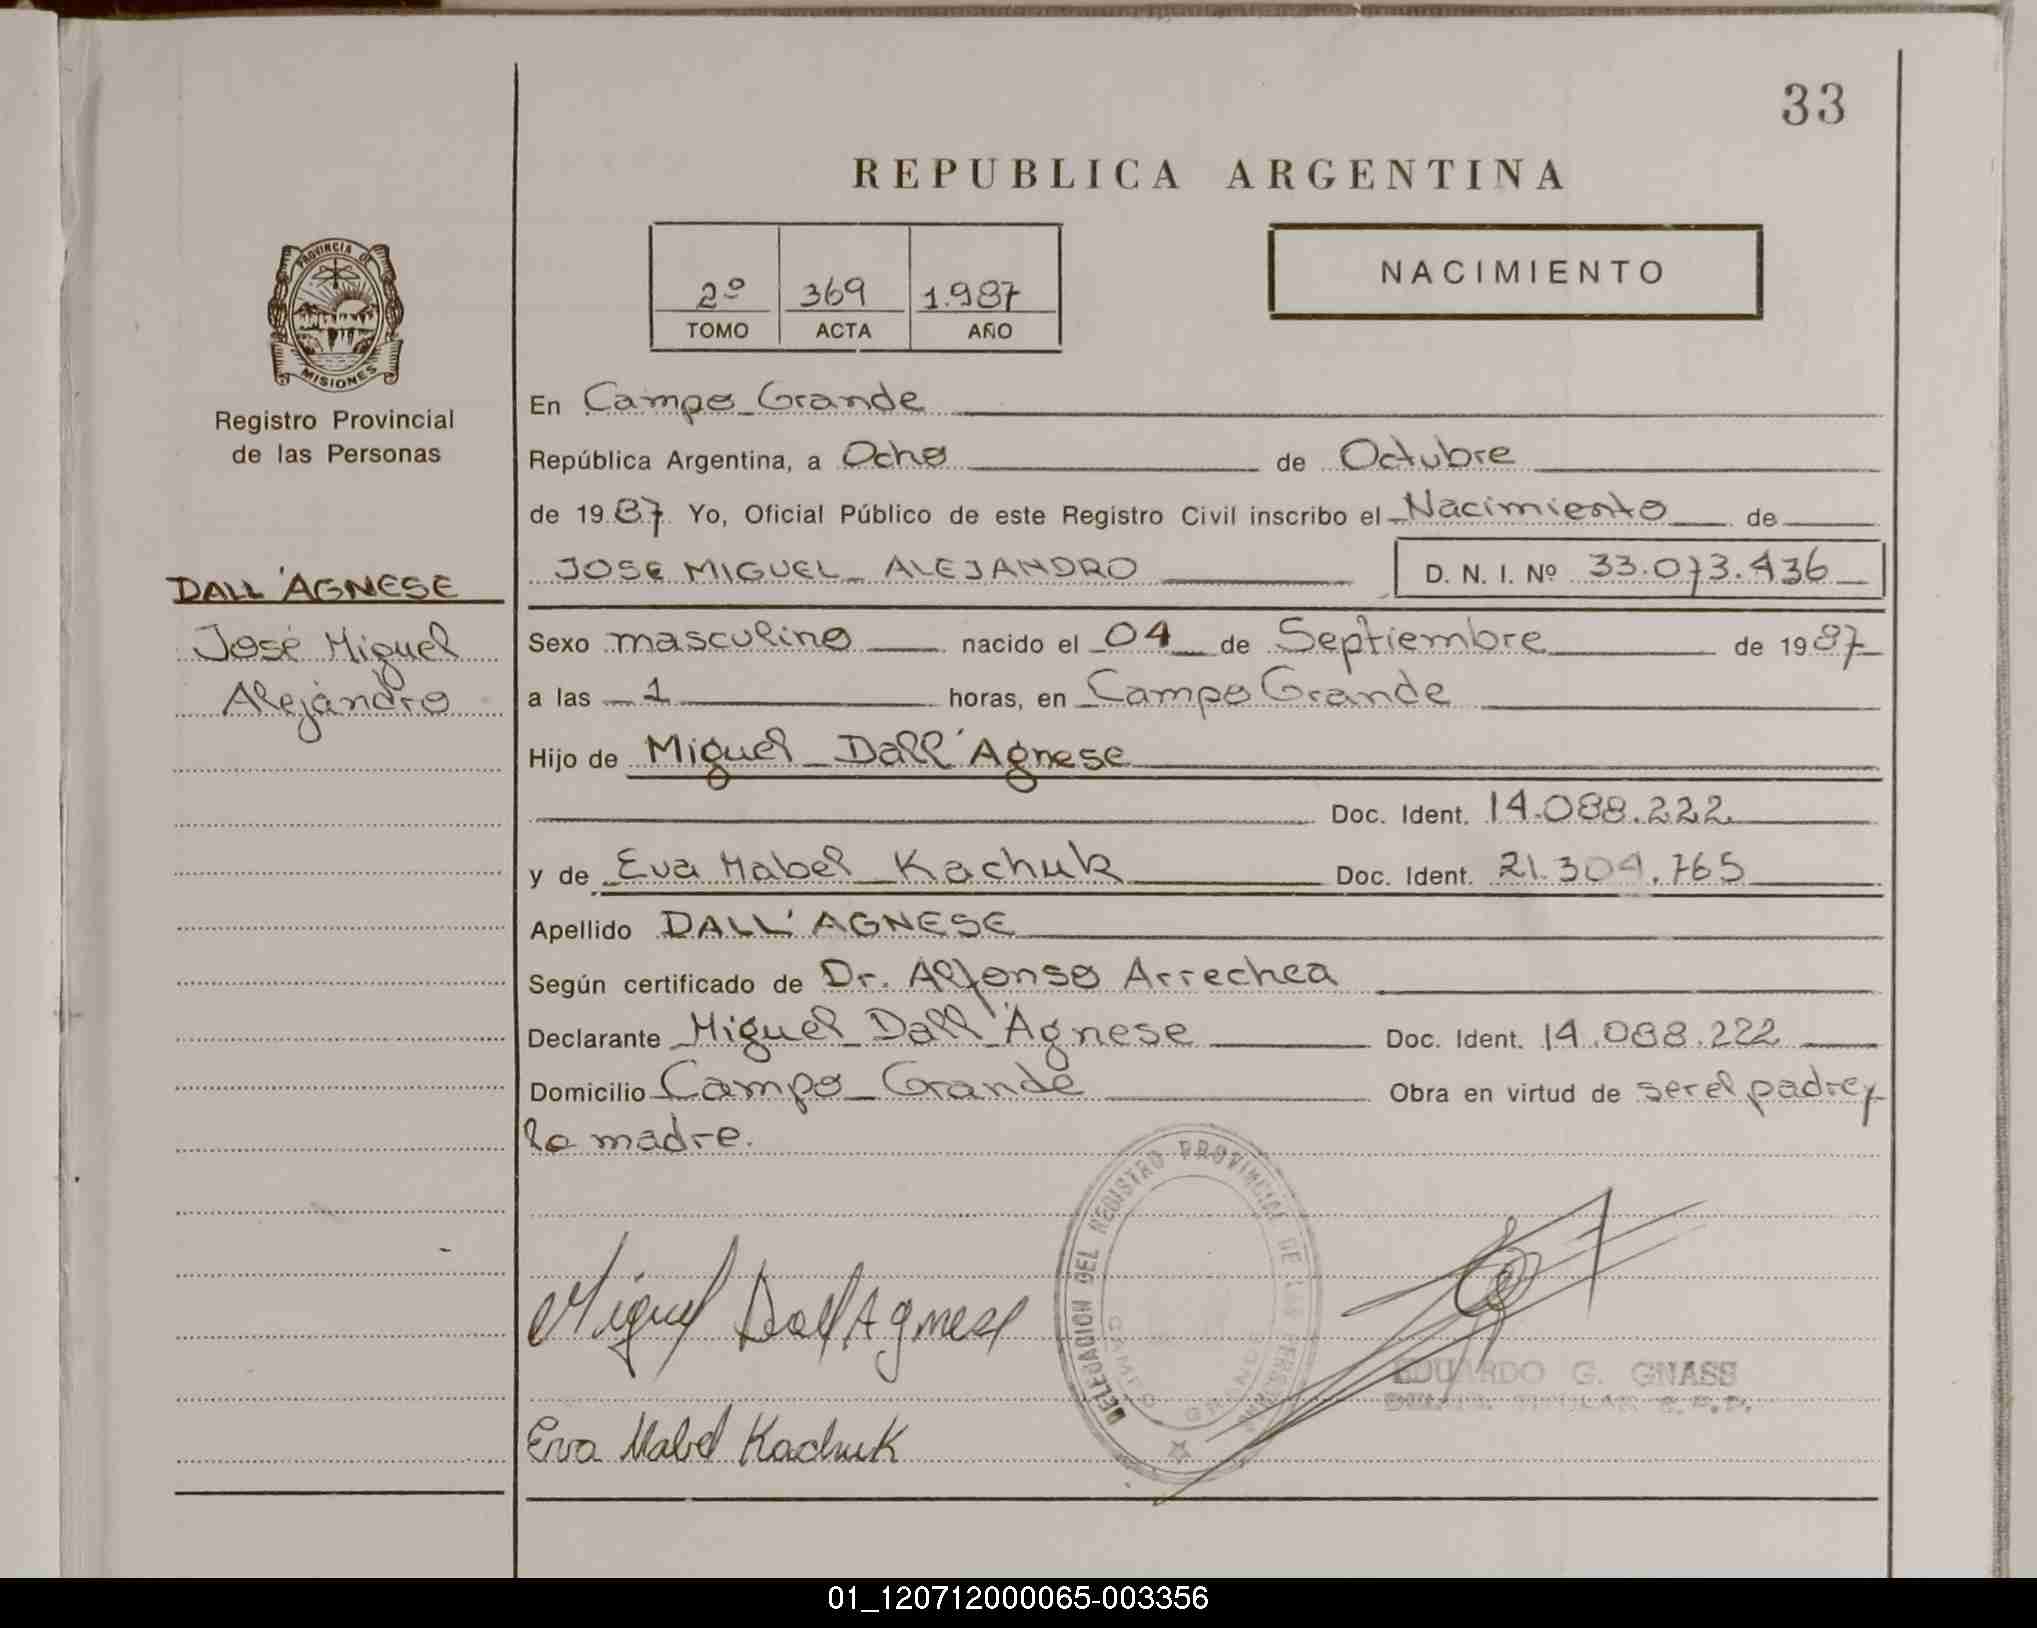 33
REPUBLICA ARGENTINA
2º 369 1.987
TOMO ACTA AÑO
NACIMIENTO
PROVINCIA DE
MISIONES
Registro Provincial
de las Personas
DALL'AGNESE
José Miguel
Alejandro
En Campo Grande
República Argentina, a Ocho de Octubre
de 1987 Yo, Oficial Público de este Registro Civil inscribo el Nacimiento de
JOSE MIGUEL ALEJANDRO D. N. I. Nº 33.073.436
Sexo masculino nacido el 04 de Septiembre de 1987
a las 1 horas, en Campo Grande
Hijo de Miguel Dall'Agnese
Doc. Ident. 14.088.222
y de Eva Mabel Kachuk Doc. Ident. 21.304.765
Apellido DALL'AGNESE
Según certificado de Dr. Alfonso Arrechea
Declarante Miguel Dall'Agnese Doc. Ident. 14.088.222
Domicilio Campo Grande Obra en virtud de ser el padre y
la madre.
DELEGACION DEL REGISTRO PROVINCIAL DE LAS PERSONAS
CAMPO GRANDE
Miguel Dall Agnese
EDUARDO G. GNASS
TITULAR R.P.P.
Eva Mabel Kachuk
01_120712000065-003356